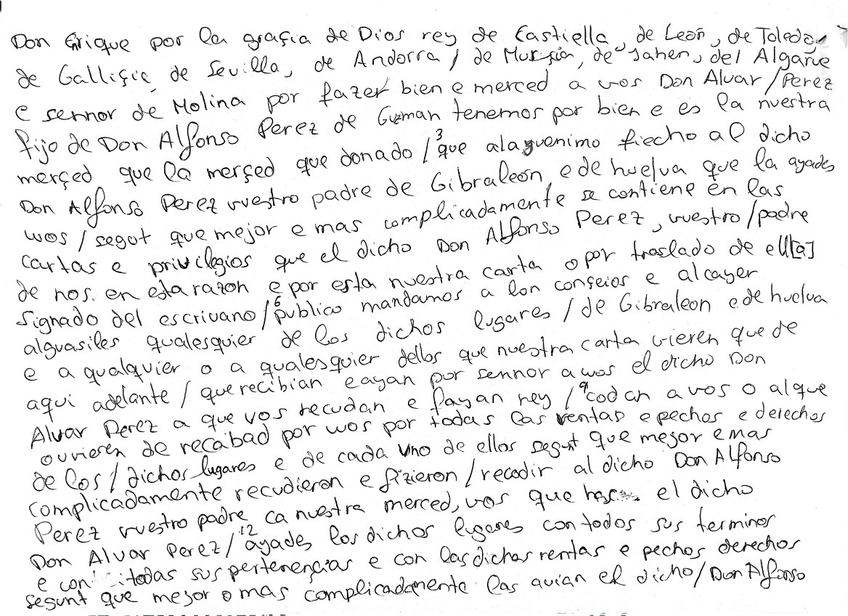 Don Enrique por la graçia de Dios rey de Castiella, de León, de Toledo,
de Galliçia, de Sevilla, de Andorra / de Murçia, de Jahen, del Algarve
e sennor de Molina por fazer bien e merced a vos Don Alvar / Perez
fijo de Don Alfonso Perez de Guzman tenemos por bien e es la nuestra
merçed que la merçed que donado /3 que alaguenimo fiecho al dicho
Don Alfonso Perez vuestro padre de Gibraleón e de huelva que la ayades
wos / segut que mejor e mas complicadamente se contiene en las
cartas e privilegios que el dicho Don Alfonso Perez, vuestro / padre
de nos. en esta razon e por esta nuestra carta o por traslado de ell[a]
signado del escrivano /6 publico mandamos a lon conseios e alcayer
alguasiles qualesquier de los dichos lugares / de Gibraleon e de huelva
e a qualquier o a qualesquier dellos que nuestra carta vieren que de
aqui adelante / que recibian e ayan por sennor a wos el dicho Don
Alvar Perez a que vos recudan e fayan rey /9 codan a vos o al que
ouvieren de recabad por wos por todas las rentas e pechos e derechos
de los / dichos lugares e de cada uno de ellos segut que mejor e mas
complicadamente recudieron e fizieron / recodir al dicho Don Alfonso
Perez vuestro padre ca nuestra merced, vos que el dicho
Don Alvar Perez /12 ayades los dichos lugares con todos sus terminos
e con todas sus pertenençias e con las dichas rentas e pechos derechos
segunt que mejor o mas complicadamente las avian el dicho / Don Alfonso